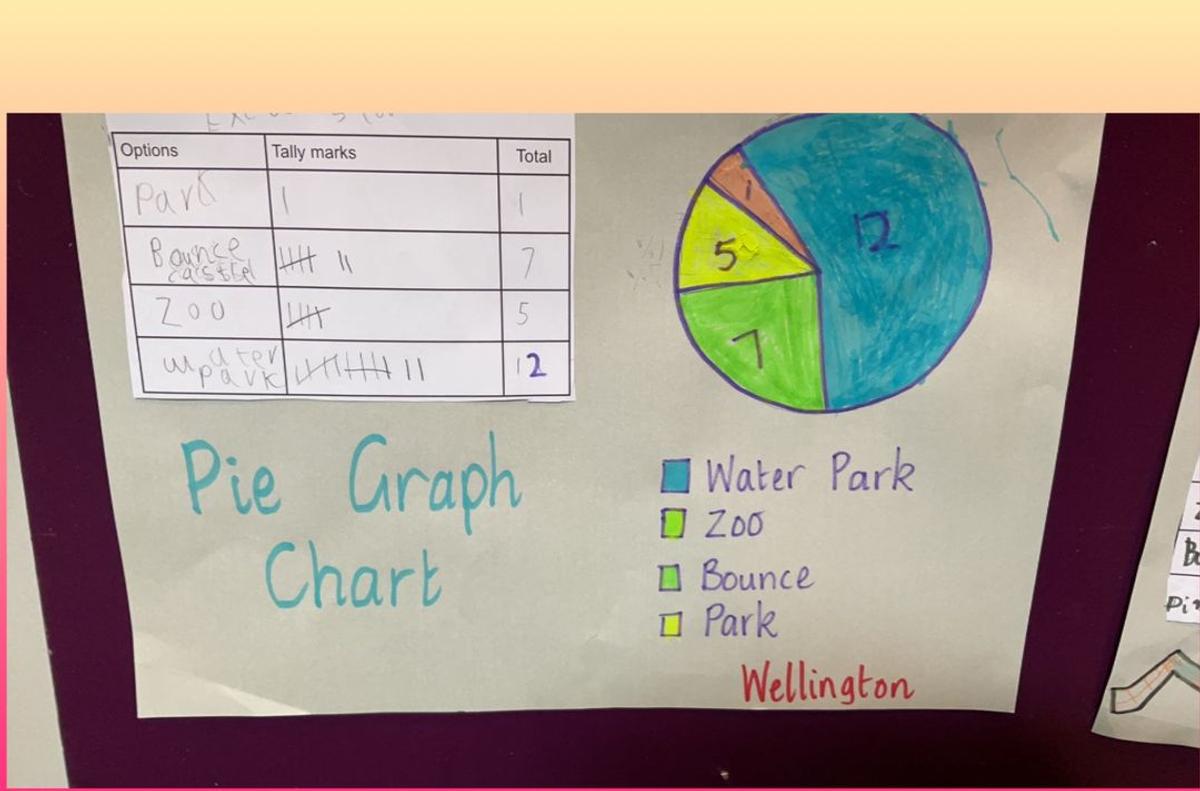 Options Tally marks Total
Park 1
Bounce 7
carsstel
Zoo 5
water 12
park
12
1
5
7
Pie Graph
Chart
Water Park
Zoo
Bounce
Park
Wellington